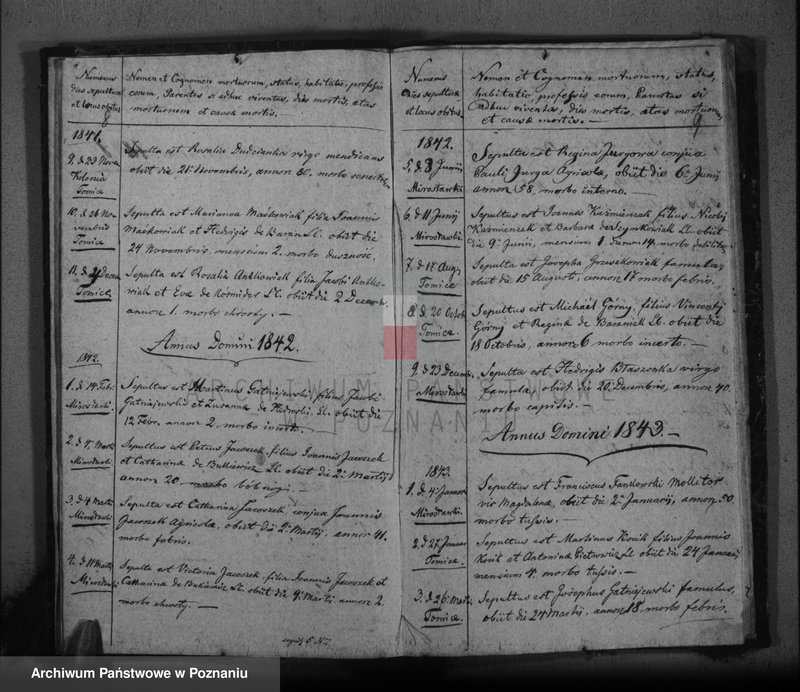 Numerus
dies sepulturæ
et locus obitus
8
Nomen et Cognomen mortuorum, status, habitatio, professio
eorum, Parentes si adhuc viventes, dies mortis, ætas
mortuorum et causæ mortis. —
1841.
9. d 23 Novem
Kolonia
Tomice
Sepulta est Rosalia virgo mendicans
obiit die 21 Novembris, annor 80. morbo
10. d. 26 No-
vembris
Tomice
Sepulta est Marianna Maćkowiak filia Joannis
Maćkowiak et Hedvigis de Baran Ll. obiit die
24 Novembris, mensium 2. morbo
11. d. 4 Decem
Tomice.
Sepulta est Rosalia Antkowiak filia Jacobi Antko-
wiak et Evæ de Ll. obiit die 2 Decemb.
annor 1. morbo chrosty. —
Annus Domini 1842.
1842.
1. d 14 Febr
Mirosławki
Sepultus est Martinus Gatniejewski, filius Jacobi
Gatniejewski et Zuzanna de Ll. obiit die
12 Febr. annor 2, morbo incerto.
2. d 4 Martii
Mirosławki
Sepultus est Petrus Jacoszek filius Joannis Jacoszek
et Catharinæ de Bukiewicz Ll. obiit die 2 Martii
annor 20 morbo
3. d 4 Martii
Mirosławki
Sepulta est Catharina Jacoszek conjux Joannis
Jacoszek Agricolæ, obiit die 2 Martii, annor 41.
morbo febris.
4. d 11 Martii
Mirosławki
Sepulta est Victoria Jacoszek filia Joannis Jacoszek et
Catharinæ de Bukiewicz Ll. obiit die 9 Martii annor 2.
morbo chrosty. —
Numerus
dies sepulturæ
et locus obitus.
Nomen et Cognomen mortuorum, status,
habitatio, professio eorum, Parentes si
adhuc viventes, dies mortis, ætas mortuorum
et causæ mortis. —
9
1842.
5. d 8 Junij
Mirosławki
Sepulta est Regina Jurgowa conjux
Pauli Jurga Agricolæ, obiit die 6 Junij
annor 58, morbo interno.
6. d 11 Junij
Mirosławki
Sepultus est Joannes Kaźmierczak filius Nicolaj
Kaźmierczak et Barbaræ Ll. obiit
die 9 Junii, mensium 1. 14 morbo
7. d 17 Aug
Tomice
Sepulta est Josepha Gruszkowiak famula
obiit die 15 August, annor 17 morbo febris.
8. d. 20 Octob
Tomice.
Sepultus est Michaël Górny, filius Vincentij
Górny et Regina de Baraniak Ll. obiit die
18 Octobris, annor 6 morbo incerto. —
9. d 23 Decemb
Mirosławki
Sepulta est Hedvigis Błaszonka virgo
famula, obiit die 20 Decembris, annor 40.
morbo capitis. —
Annus Domini 1843. —
1843.
1. d. 4 Januar
Mirosławki.
Sepultus est Franciscus Fankowski Mollitor
vir Magdalenæ, obiit die 2 Januarij, annor 50
morbo tussis. —
2. d 27 Januar
Tomice.
Sepultus est Martinus Kouik filius Joannis
Kouik et Antoninæ Pietrowicz Ll. obiit die 24 Januarij
mensium 4. morbo tussis. —
3. d. 26 Martii
Tomice.
Sepultus est Josephus Gatniejewski famulus,
obiit die 24 Martii, annor 18, morbo febris.
ARCHIWUM PAŃSTWOWE W
POZNANIU
Archiwum Państwowe w Poznaniu